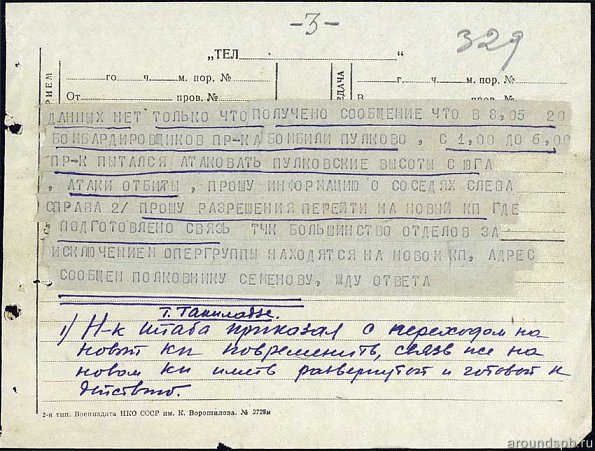 -3-
329
„ТЕЛ “
ПРИЕМ го ч. м. пор. №
От пров. №
ПЕРЕДАЧА г. ч. м. пор. №
В пров. №
ДАННЫХ НЕТ ТОЛЬКО ЧТО ПОЛУЧЕНО СООБЩЕНИЕ ЧТО В 8,05 20
БОМБАРДИРОВЩИКОВ ПР-КА БОМБИЛИ ПУЛКОВО , С 1,00 ДО 6,00
ПР-К ПЫТАЛСЯ АТАКОВАТЬ ПУЛКОВСКИЕ ВЫСОТЫ С ЮГА
, АТАКИ ОТБИТЫ , ПРОШУ ИНФОРМАЦИЮ О СОСЕДЯХ СЛЕВА
СПРАВА 2/ ПРОШУ РАЗРЕШЕНИЯ ПЕРЕЙТИ НА НОВЫЙ КП ГДЕ
ПОДГОТОВЛЕНО СВЯЗЬ ТЧК БОЛЬШИНСТВО ОТДЕЛОВ ЗА
ИСКЛЮЧЕНИЕМ ОПЕРГРУППЫ НАХОДЯТСЯ НА НОВОМ КП, АДРЕС
СООБЩЕН ПОЛКОВНИКУ СЕМЕНОВУ, ЖДУ ОТВЕТА
т.
1) Н-к штаба приказал с переходом на
новый кп повременить, связь же на
новом кп иметь развернутой и готовой к
действию.
2-я тип. Воениздата НКО СССР им. К. Ворошилова. № 2728м
aroundspb.ru